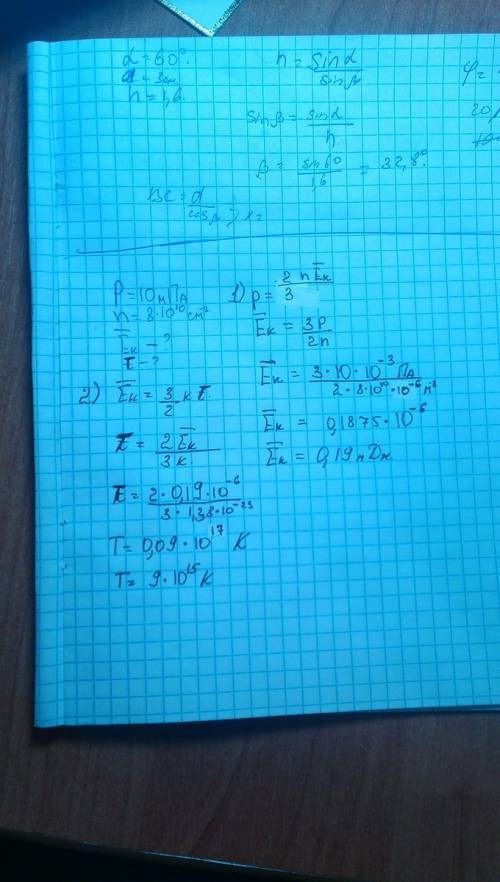 α = 60°.
d = 3см
n = 1,6.
n = sinα / sinβ
φ =
sinβ = sinα / n
β = sin60 / 1,6 = 32,8°.
BC = d / cosβ
P = 10мПа
n = 8·10¹⁰см⁻³
E̅к – ?
T – ?
1) p = 2 n E̅к / 3
E̅к = 3P / 2n
E̅к = 3·10·10⁻³ Па / 2·8·10¹⁰·10⁻⁶ м⁻³
E̅к = 0,1875·10⁻⁶
E̅к = 0,19 п Дж
2) E̅к = 3/2 k T.
T = 2E̅к / 3k
T = 2·0,19·10⁻⁶ / 3·1,38·10⁻²³
T = 0,09·10¹⁷ K
T = 9·10¹⁵ K